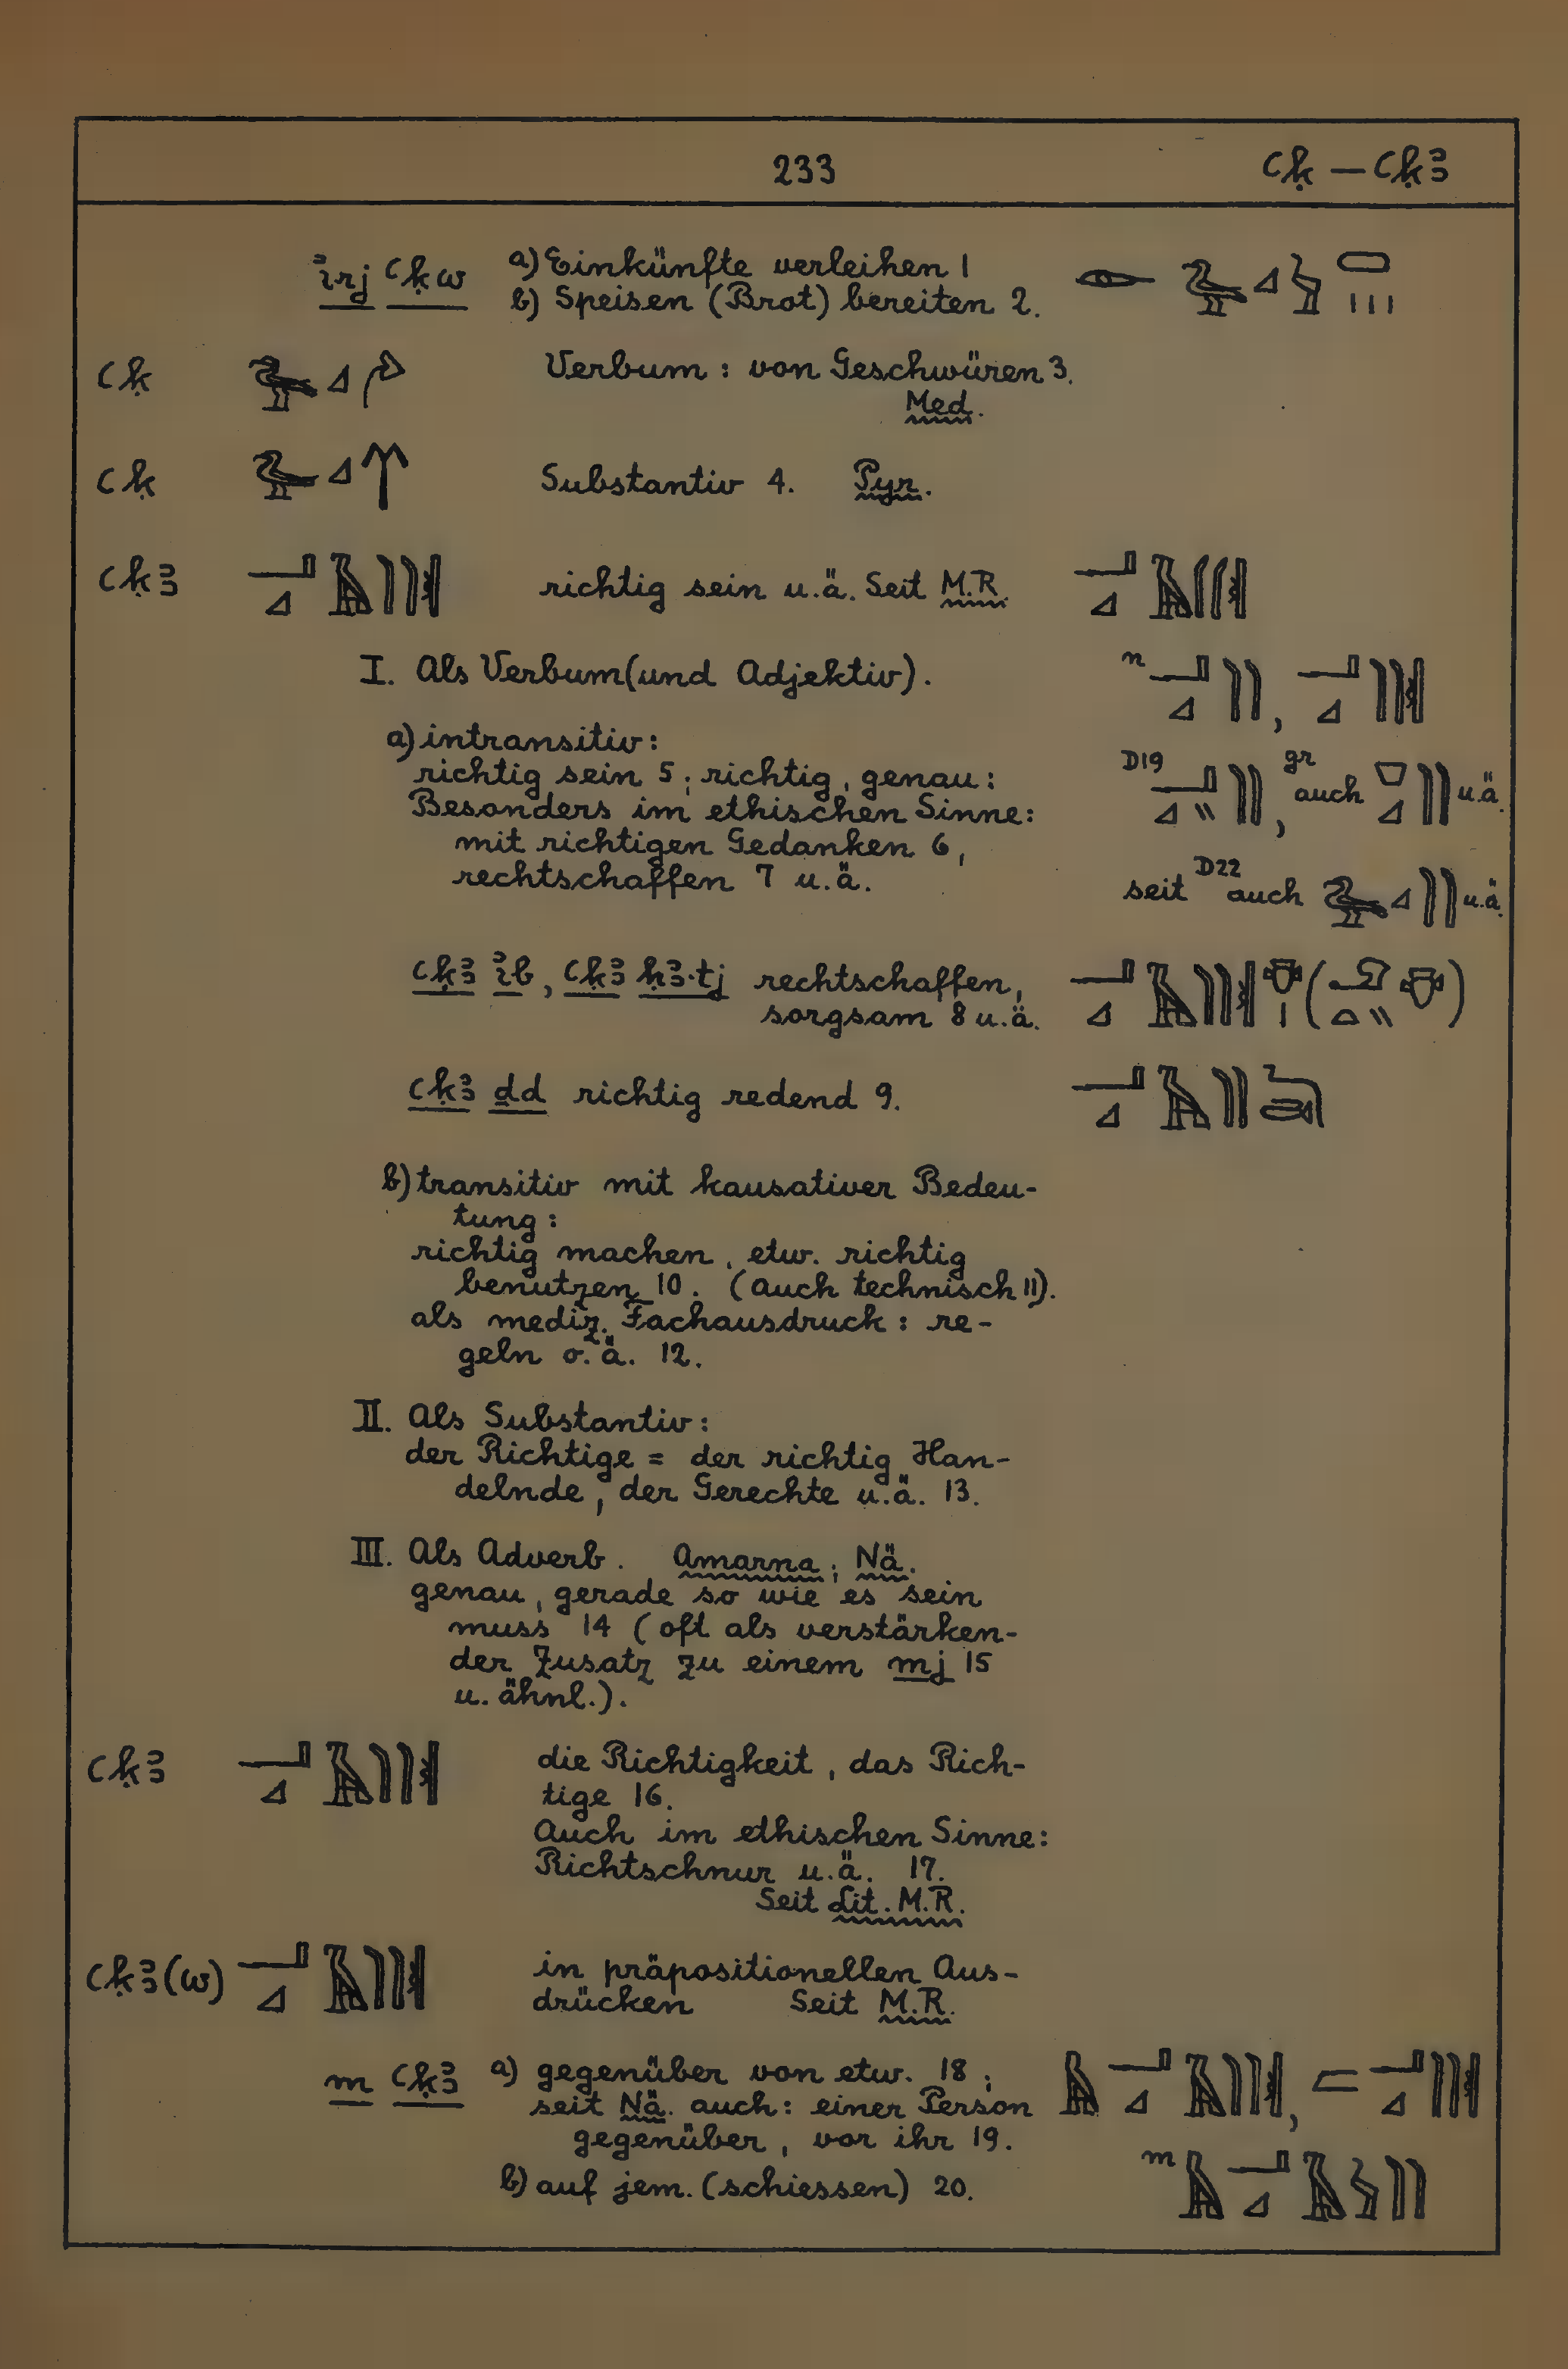 233 ꜥḳ — ꜥḳꜣ
ꞽrj ꜥḳw a) Einkünfte verleihen 1
b) Speisen (Brot) bereiten 2.
ꜥḳ Verbum : von Geschwüren 3.
Med.
ꜥḳ Substantiv 4. Pyr.
ꜥḳꜣ richtig sein u.ä. Seit M.R.
I. Als Verbum (und Adjektiv). n
a) intransitiv :
richtig sein 5 ; richtig, genau : D19 , gr auch u.ä.
Besonders im ethischen Sinne :
mit richtigen Gedanken 6,
rechtschaffen 7 u.ä. seit D22 auch u.ä.
ꜥḳꜣ ꞽb, ꜥḳꜣ ḥꜣ·tj rechtschaffen,
sorgsam 8 u.ä.
ꜥḳꜣ ḏd richtig redend 9.
b) transitiv mit kausativer Bedeu-
tung :
richtig machen, etw. richtig
benutzen 10. (auch technisch 11).
als mediz. Fachausdruck : re-
geln o.ä. 12.
II. Als Substantiv :
der Richtige = der richtig Han-
delnde, der Gerechte u.ä. 13.
III. Als Adverb. Amarna ; Nä.
genau, gerade so wie es sein
muss 14 (oft als verstärken-
der Zusatz zu einem mj 15
u. ähnl.).
ꜥḳꜣ die Richtigkeit, das Rich-
tige 16.
Auch im ethischen Sinne :
Richtschnur u.ä. 17.
Seit Lit. M.R.
ꜥḳꜣ(w) in präpositionellen Aus-
drücken Seit M.R.
m ꜥḳꜣ a) gegenüber von etw. 18 ;
seit Nä. auch : einer Person
gegenüber, vor ihr 19.
b) auf jem. (schiessen) 20. m